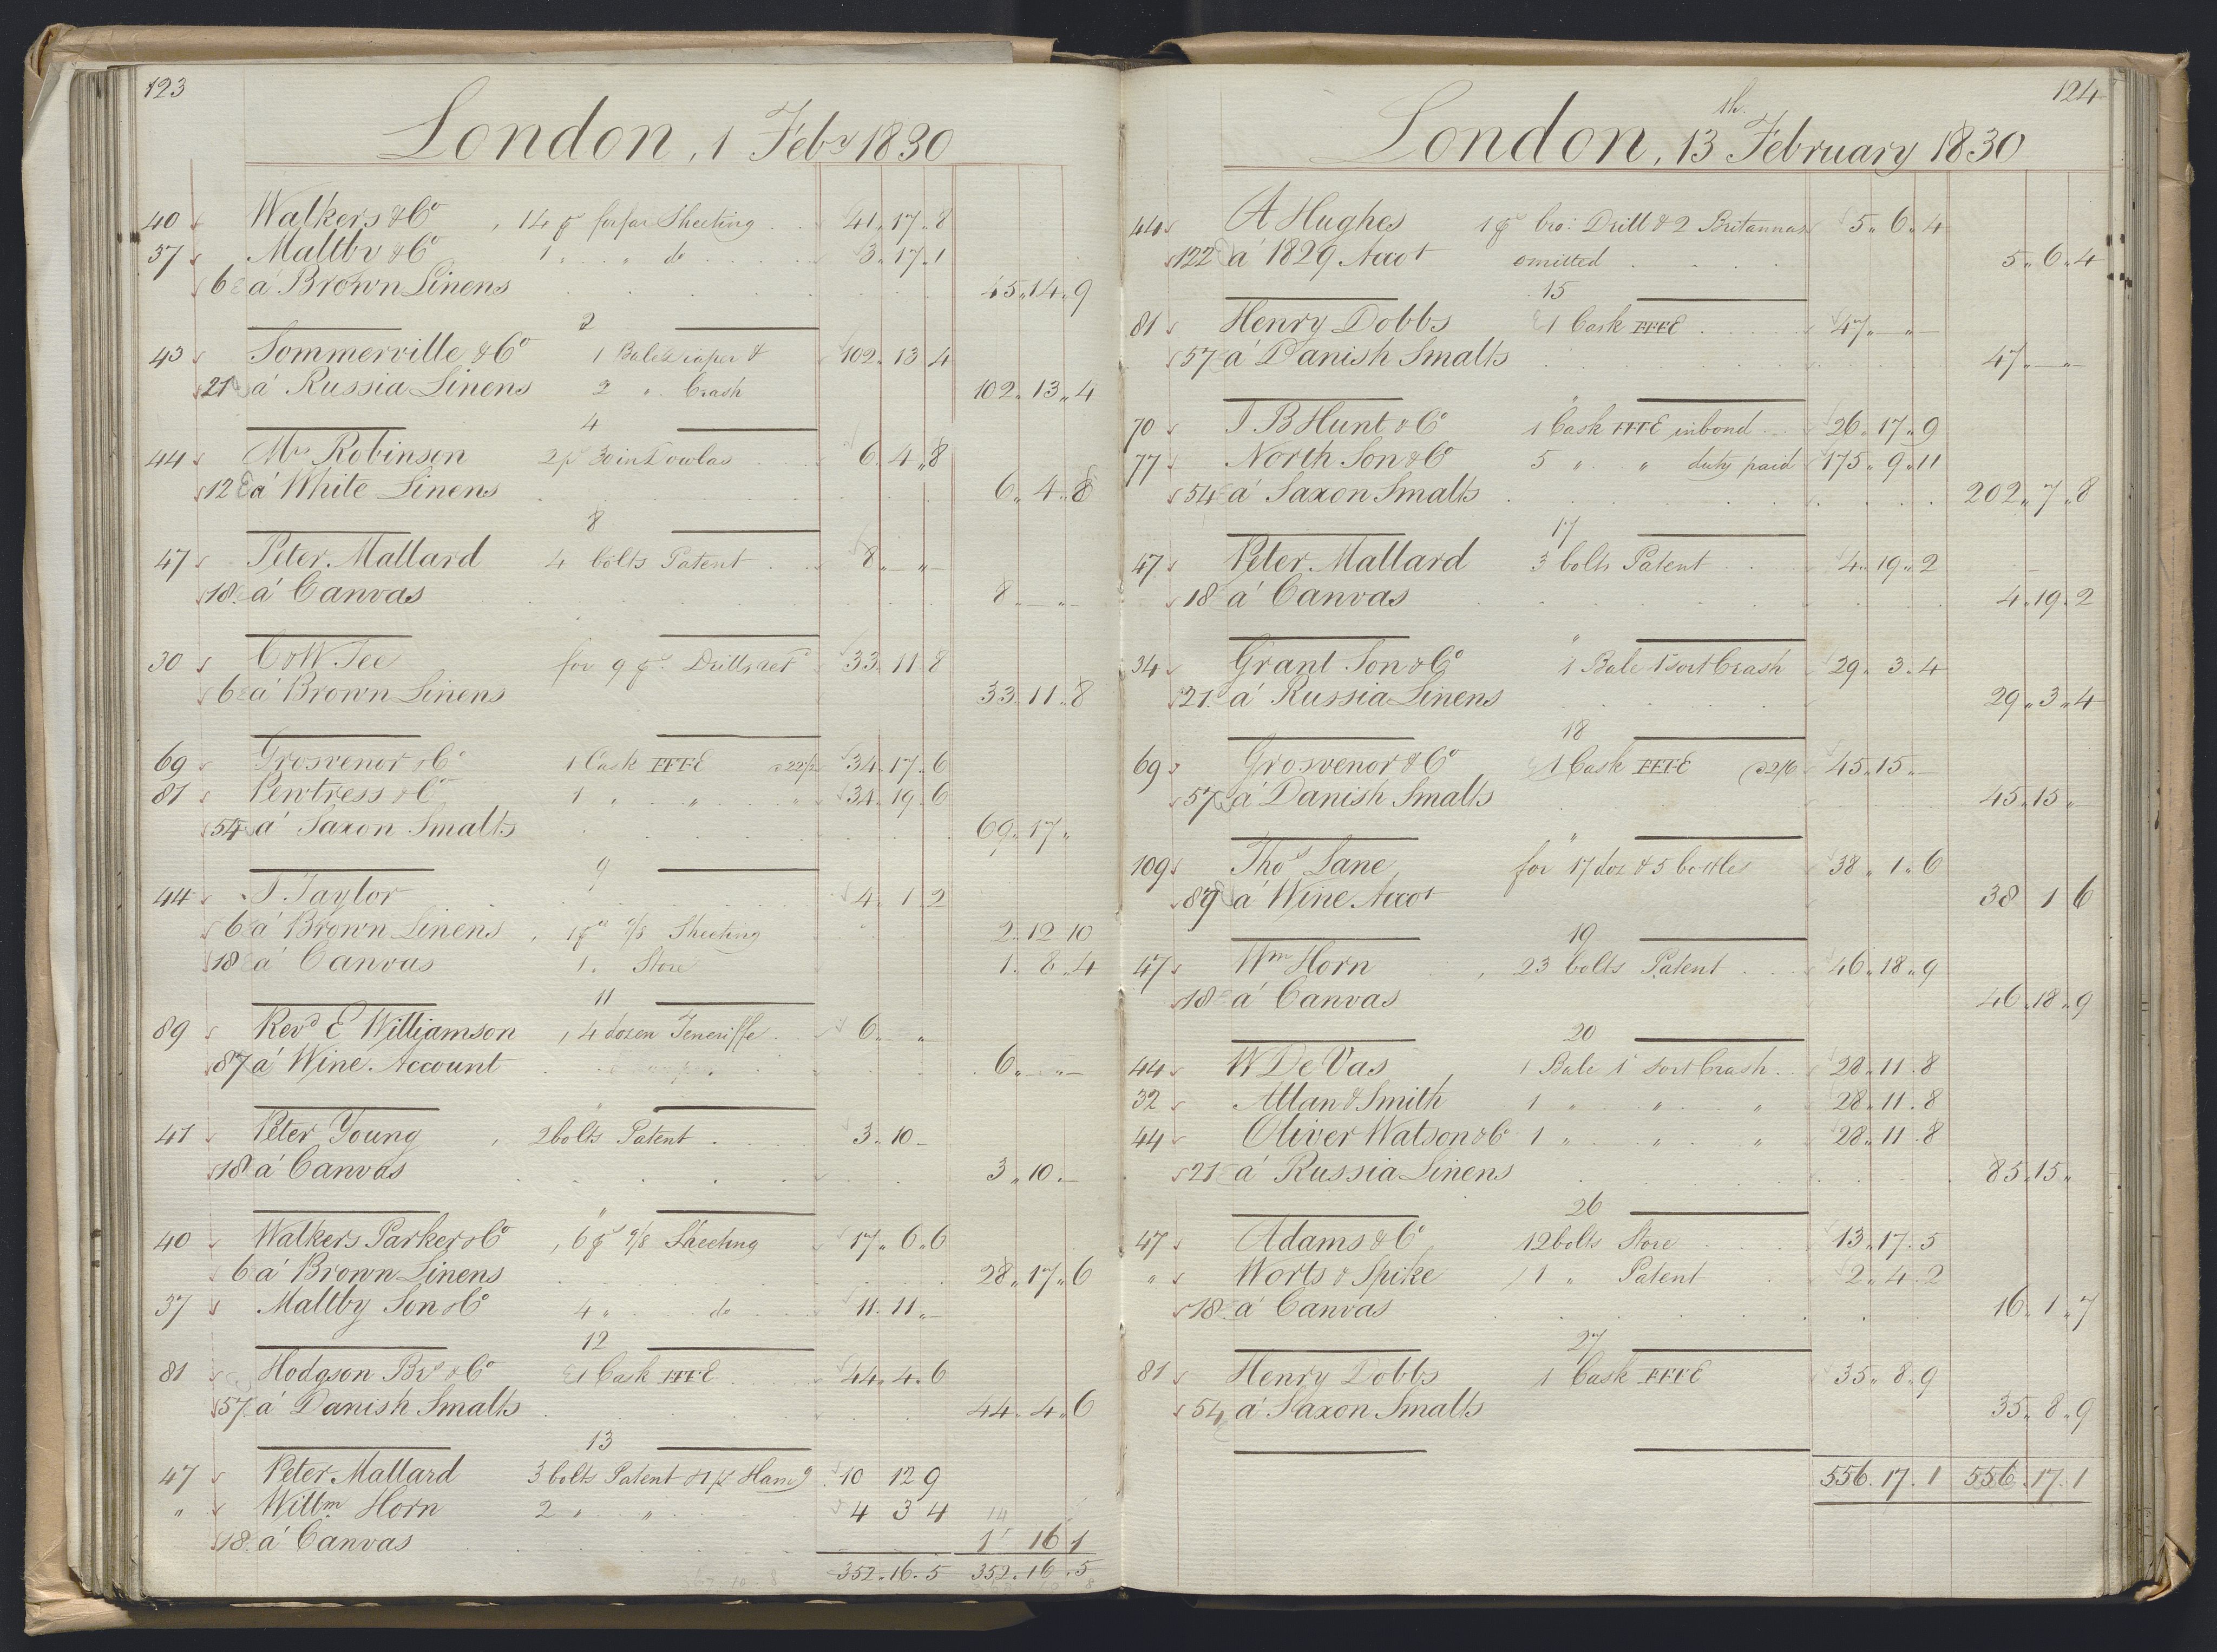 123
London, 1 Feby 1830
40 Walkers & Co, 14 ps forfar Sheeting 41.17.8
37 Maltby & Co 1 " " do 3.17.1
6 á Brown Linens 45.14.9
2
43 Sommerville & Co 1 Bale Diaper & 102.13.4
21 á Russia Linens 2 " Crash 102.13.4
4
44 Mrs Robinson 2 ps 30 in Dowlas 6.4.8
12 á White Linens 6.4.8
8
47 Peter Mallard 4 bolts Patent 8.—"—
18 á Canvas 8.—"—
30 C & W Tee for 9 ps Drills retd 33.11.8
6 á Brown Linens 33.11.8
"
69 Grosvenor & Co 1 Cask FFFE 34.17.6
81 Pewtress & Co 1 " " " 34.19.6
54 á Saxon Smalts 69.17"
9
44 J Taylor 4.1.2
6 á Brown Linens, 1 ps 9/8 Sheeting 2.12.10
18 á Canvas 1 " Store 1.8.4
11
89 Revd E Williamson, 4 dozen Teneriffe 6.—"
87 á Wine Account 6.—"—
"
47 Peter Young, 2 bolts Patent 3.10—
18 á Canvas 3.10.—
"
40 Walkers Parker & Co, 6 ps 9/8 Sheeting 17.6.6
6 á Brown Linens 28.17.6
37 Maltby Son & Co 4 " do 11.11"—
12
81 Hodgson Bros & Co 1 Cask FFFE 44.4.6
57 á Danish Smalts 44.4.6
13
47 Peter Mallard 3 bolts Patent & 1 ps Hamg 10 12 9
" Willm Horn 2 " " 4 3 4
18 á Canvas 14 16 1
352.16.5 352.16.5
124
London, 13th February 1830
44 A Hughes 1 ps bro: Drill & 2 Britannas 5.6.4
122 á 1829 Accot omitted 5.6.4
15
81 Henry Dobbs 1 Cask FFFE 47"—"—
57 á Danish Smalts 47"—"—
"
70 T B Hunt & Co 1 Cask FFFE in bond 26.17.9
77 North Son & Co 5 " " duty paid 175.9.11
54 á Saxon Smalts 202.7.8
17
47 Peter Mallard 3 bolts Patent 4.19.2
18 á Canvas 4.19.2
"
34 Grant Son & Co 1 Bale 1 sort Crash 29.3.4
21 á Russia Linens 29.3.4
18
69 Grosvenor & Co 1 Cask FFFE @ 2/6 45.15"—
57 á Danish Smalts 45.15"
"
109 Thos Lane for 17 doz & 5 bottles 38.1.6
87 á Wine Accot 38 1 6
19
47 Wm Horn, 23 bolts Patent 46.18.9
18 á Canvas 46.18.9
20
44 W De Vas 1 Bale 1 sort Crash 28.11.8
32 Allan & Smith 1 " " " 28.11.8
44 Oliver Watson & Co 1 " " " 28.11.8
21 á Russia Linens 85.15"
26
47 Adams & Co 12 bolts Store 13.17.5
" Worts & Spike 1 " Patent 2.4.2
18 á Canvas 16.1.7
27
81 Henry Dobbs 1 Cask FFFE 35.8.9
54 á Saxon Smalts 35.8.9
556.17.1 556.17.1